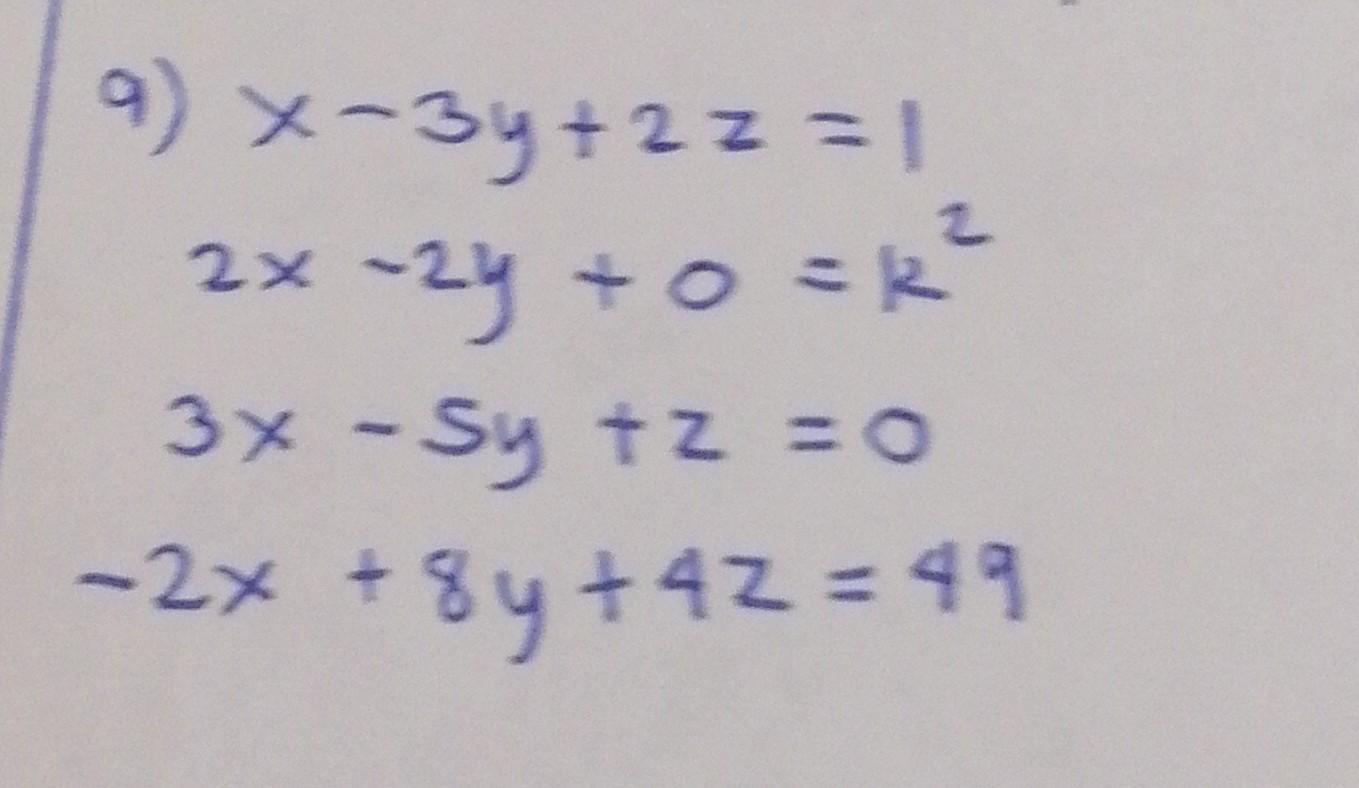 9) x - 3y + 2z = 1
2x - 2y + 0 = k²
3x - 5y + z = 0
-2x + 8y + 4z = 49